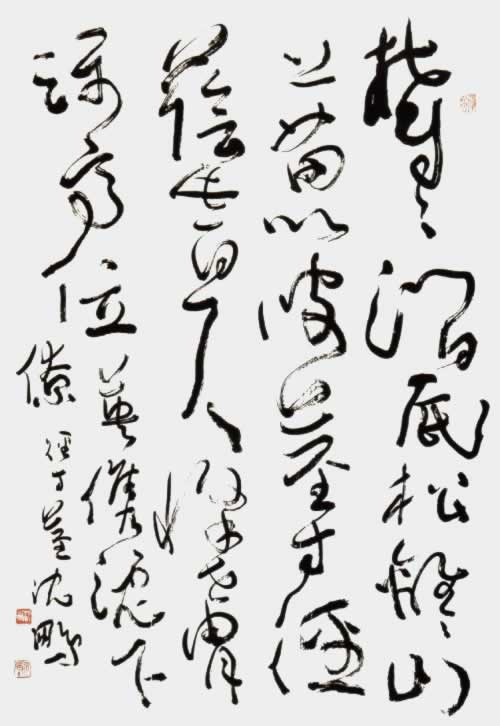 鬱〻澗底松離〻山
上苗以彼莖寸徑
蔭此百尺條世胄
躡高位英儁沈下
僚 徑寸莖 沈鵬